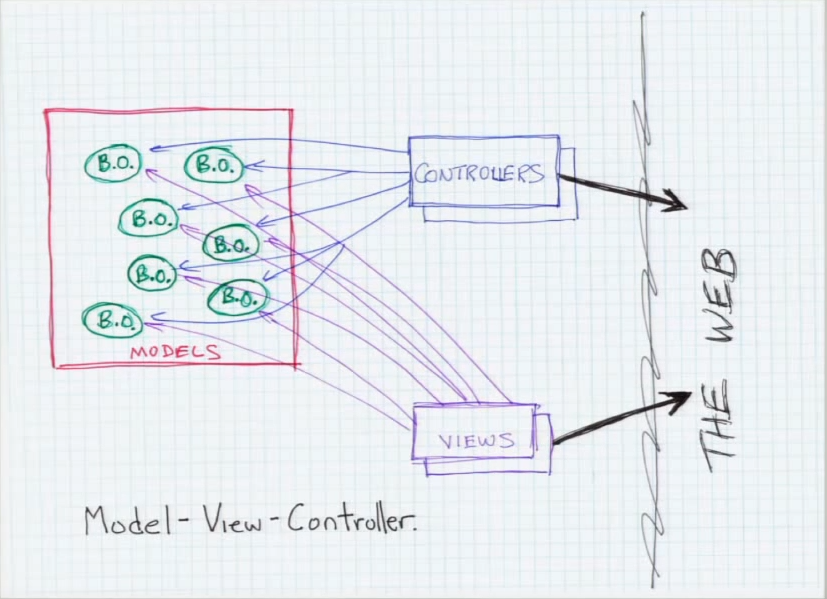 B.O.
B.O.
B.O.
B.O.
B.O.
B.O.
B.O.
MODELS
CONTROLLERS
VIEWS
THE WEB
Model-View-Controller.